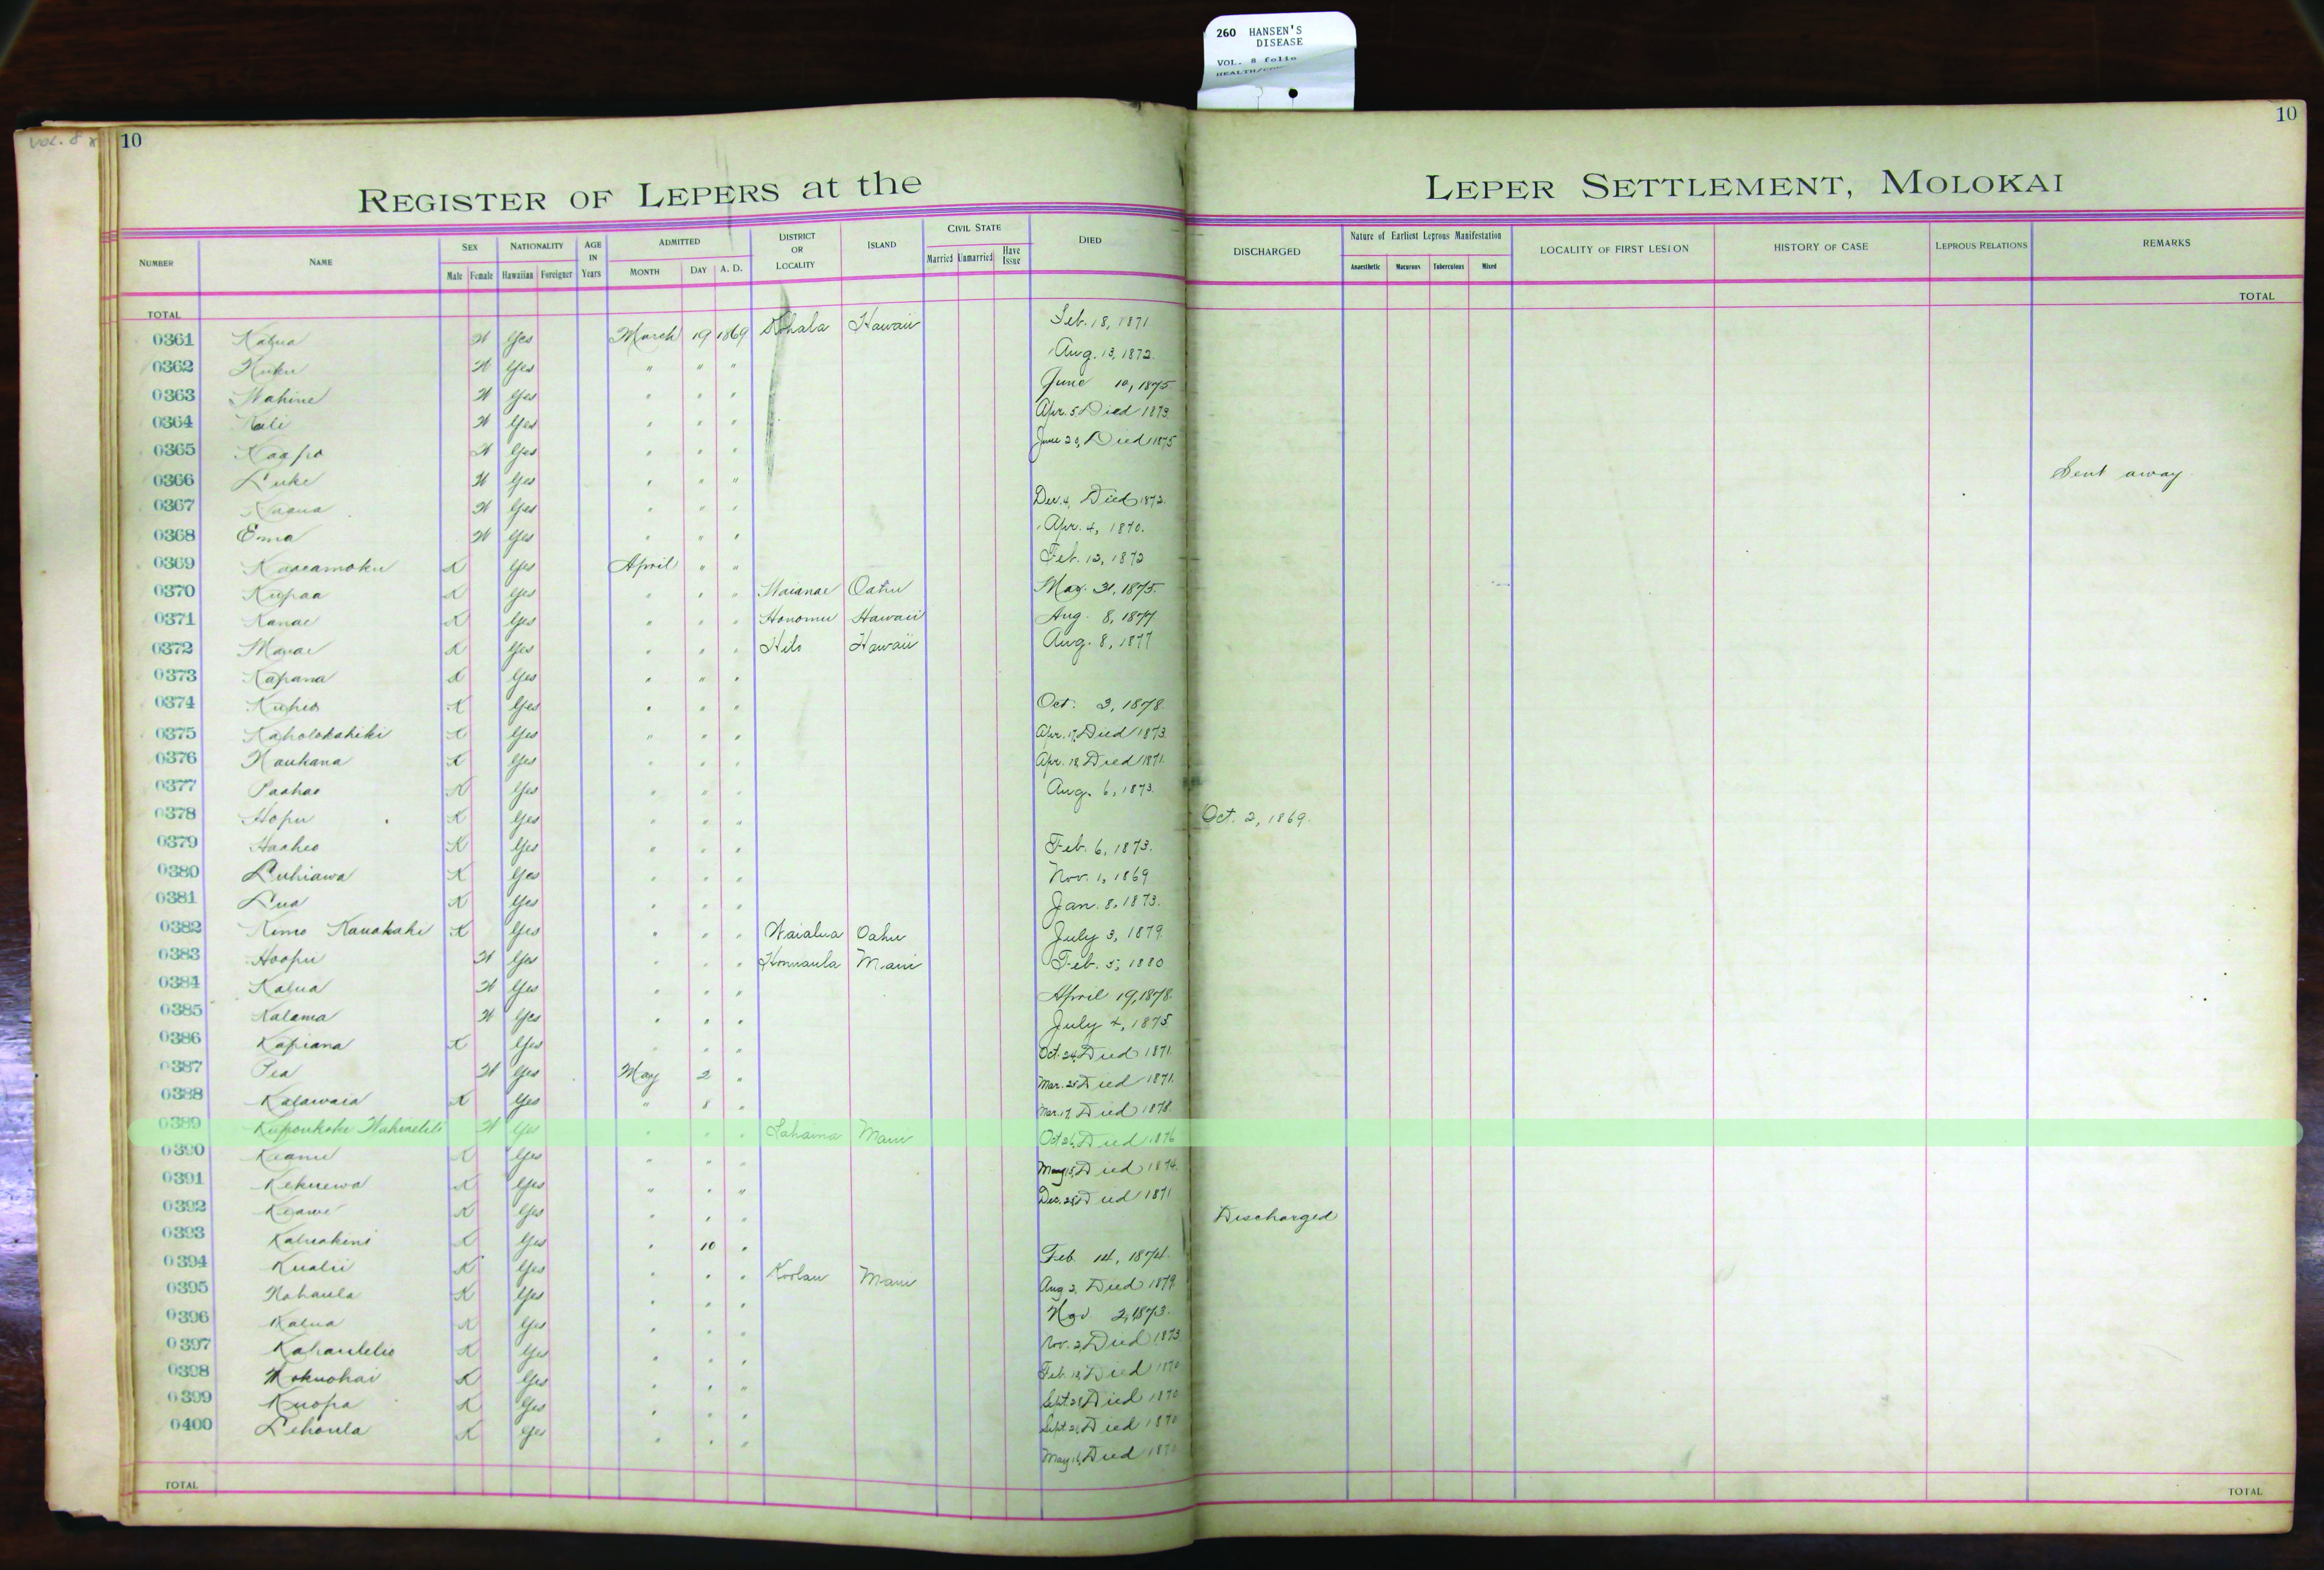 260 HANSEN'S
DISEASE
VOL. 8 folio
VOL. 8
10
10
REGISTER OF LEPERS at the LEPER SETTLEMENT, MOLOKAI
NUMBER NAME SEX Male Female NATIONALITY Hawaiian Foreigner AGE IN Years ADMITTED MONTH DAY A. D. DISTRICT OR LOCALITY ISLAND CIVIL STATE Married Unmarried Have Issue DIED DISCHARGED Nature of Earliest Leprous Manifestation Anaesthetic Macurous Tuberculous Mixed LOCALITY OF FIRST LESION HISTORY OF CASE LEPROUS RELATIONS REMARKS
TOTAL TOTAL
0361 Kalua W Yes March 19 1869 Kohala Hawaii Feb. 18, 1871
0362 W Yes " " " Aug. 13, 1872.
0363 Wahine W Yes " " " June 10, 1875
0364 Kali W Yes " " " Apr. 5 Died 1873.
0365 Kaapo W Yes " " " June 20, Died 1875
0366 Luke W Yes " " " Sent away
0367 W Yes " " " Dec. 4, Died 1872.
0368 Emma W Yes " " " Apr. 4, 1870.
0369 Kaaeamoku K Yes April " " Feb. 12, 1872
0370 Kupaa K Yes " " " Waianae Oahu May. 31, 1875.
0371 Kanae K Yes " " " Honomu Hawaii Aug. 8, 1877
0372 K Yes " " " Hilo Hawaii Aug. 8, 1877
0373 Kapana K Yes " " "
0374 Kuheo K Yes " " " Oct. 3, 1878.
0375 Kaholokahiki K Yes " " " Apr. 17, Died 1873.
0376 Naukana K Yes " " " Apr. 18 Died 1871.
0377 Paahao K Yes " " " Aug. 6, 1873.
0378 Hopu K Yes " " " Oct. 2, 1869.
0379 Haaheo K Yes " " " Feb. 6, 1873.
0380 Luhiawa K Yes " " " Nov. 1, 1869
0381 Lua K Yes " " " Jan. 8, 1873.
0382 Kimo Kauakahi K Yes " " " Waialua Oahu July 3, 1879.
0383 Hoopii W Yes " " " Honuaula Maui Feb. 5, 1880
0384 Kalua W Yes " " " April 19, 1878.
0385 Kalama W Yes " " " July 4, 1875
0386 Kapiana K Yes " " " Oct. 24, Died 1871.
0387 Pea W Yes May 2 " Mar. 25 Died 1871.
0388 Kalawaia K Yes " 8 " Mar. 17 Died 1878.
0389 W Yes " " " Lahaina Maui Oct 26, Died 1876
0390 Keanu K Yes " " " May 15, Died 1874.
0391 Kekuewa K Yes " " " Dec. 28 Died 1871
0392 Keawe K Yes " " " Discharged
0393 Kaluakini K Yes " 10 " Feb. 14, 1874.
0394 Kualii K Yes " " " Koolau Maui Aug 2, Died 1879.
0395 Nahaula K Yes " " " Nov 2, 1873.
0396 Kalua K Yes " " " Nov. 2, Died 1873
0397 Kahaulelio K Yes " " " Feb. 18, Died 1870
0398 Mokuohai K Yes " " " Sept. 28 Died 1870
0399 Kuopa K Yes " " " Sept. 21, Died 1870
0400 Lehaula K Yes " " " May 16, Died 1870
TOTAL TOTAL